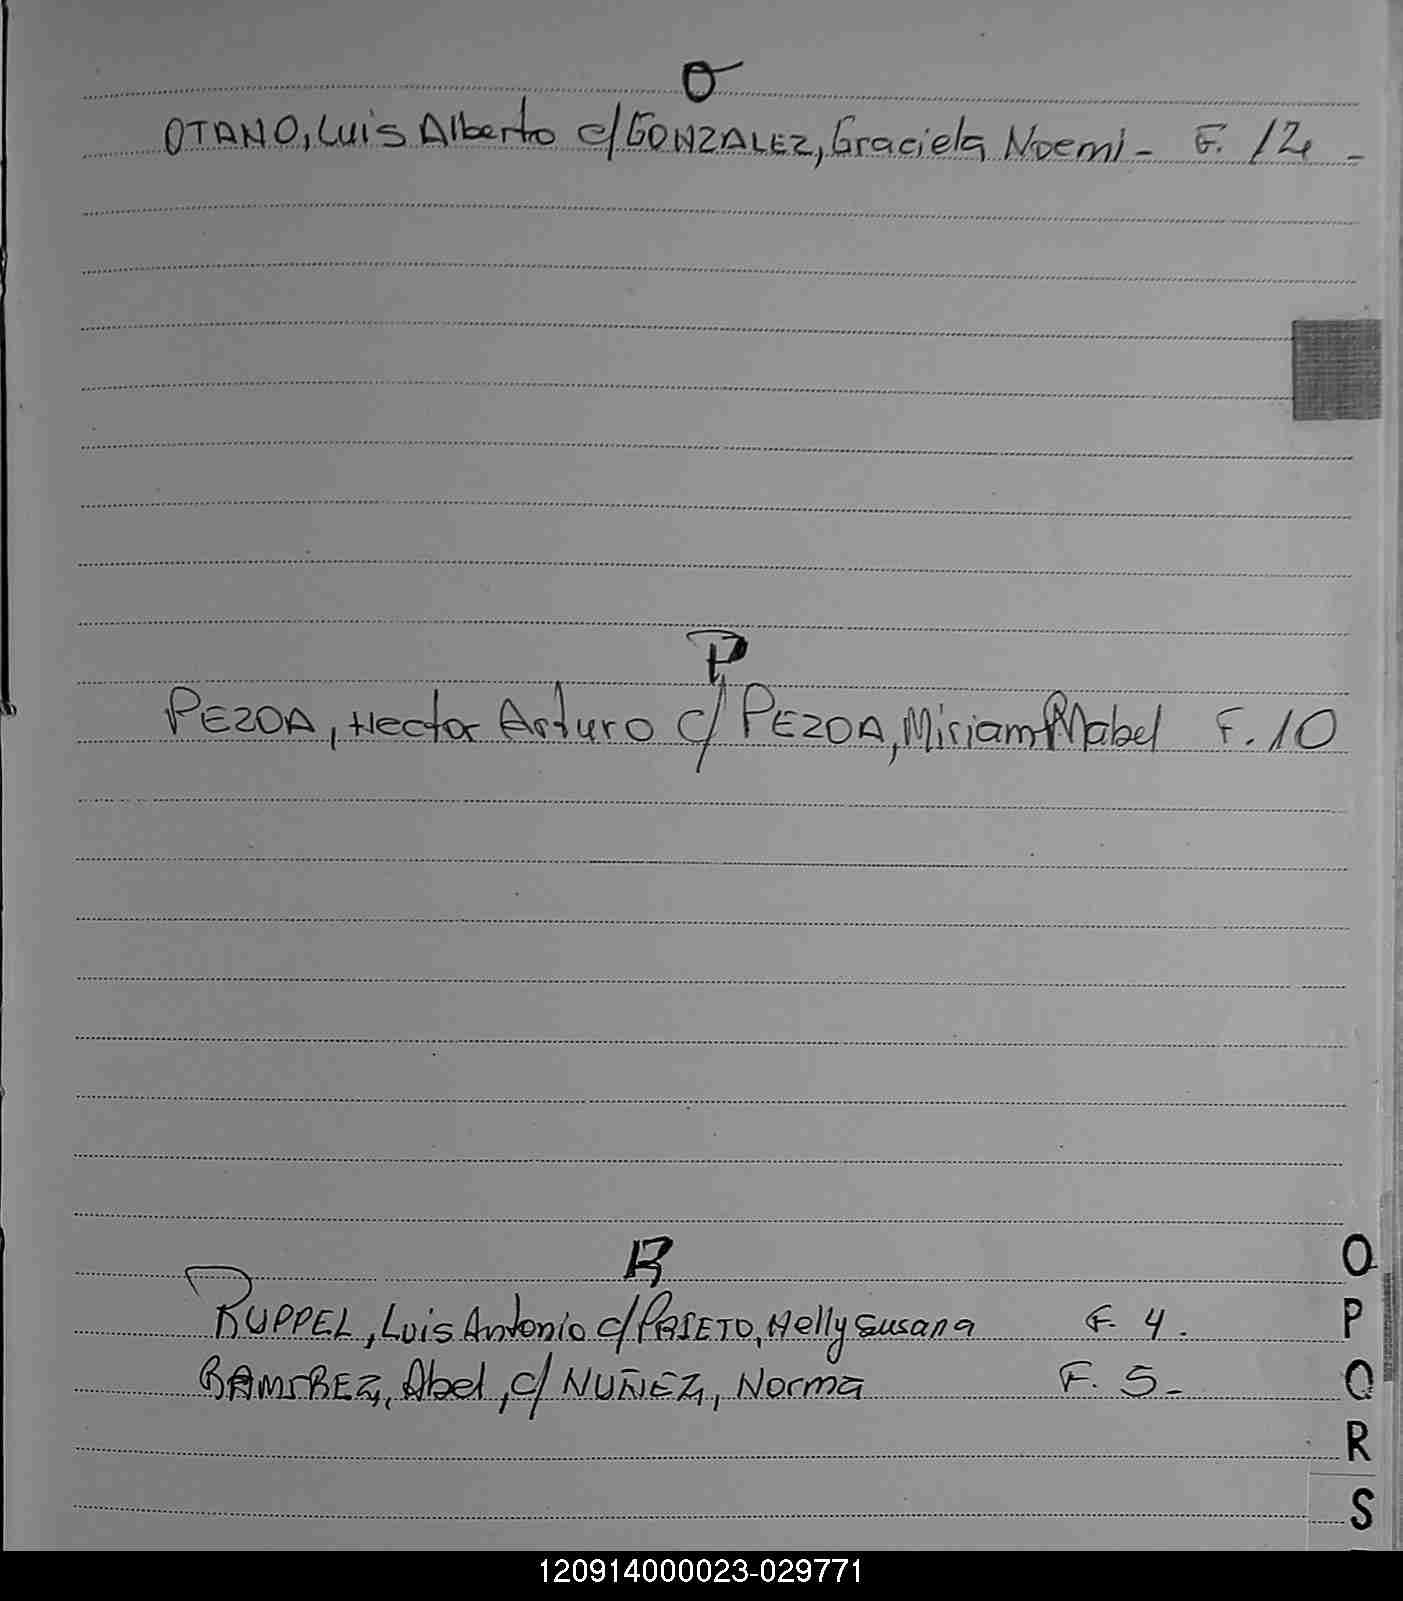 O
OTANO, Luis Alberto c/ GONZALEZ, Graciela Noemi - F. 12 -
P
PEZOA, Hector Arturo c/ PEZOA, Miriam Mabel F. 10
R
RUPPEL, Luis Antonio c/ PRIETO, Nelly Susana F. 4.
RAMIREZ, Abel, c/ NUÑEZ, Norma F. 5 -
O
P
Q
R
S
120914000023-029771